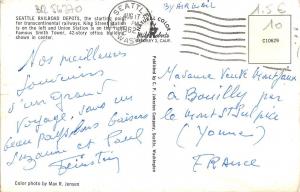 BQ 86770
BY AIR MAIL
1.5€
10
C10629
SEATTLE RAILROAD DEPOTS, the starting point
for transcontinental railways. King Street station
is on the left and Union Station is on the right.
Famous Smith Tower, 42-story office building,
shown in center.
SEATTLE
WASH
COLOR
BERKELEY 2, CALIF.
Published by C. P. Johnston Company, Seattle, Washington
Nos meilleurs
souvenirs
d'un grand
voyage, dans un
beau pays. Bons baisers
Suzanne et Paul
Madame Veuve
à Bouilly par
le Mont St Sulpice
(Yonne)
FRANCE
Color photo by Max R. Jensen